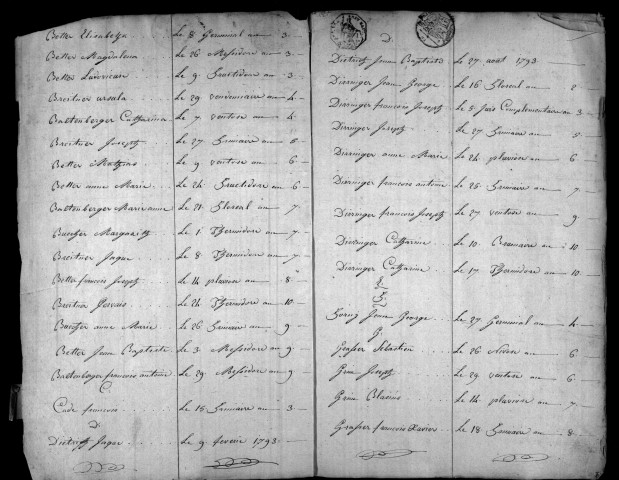 Better Elisabetha . . le 8 Germinal an 3
Better Magdalena . . le 26 Messidore an 3
Better Ludovicus . . le 9 Fructidore an 3
Breitner ursula . . le 29 vendemiaire an 4
Bactenberger Catharina le 7 ventose an 4
Breitner Joseph . . le 27 frimaire an 6
Better Mathias . . le 9 ventose an 6
Better anne Marie . . le 24 Fructidore an 6
Bactenberger Marie anne le 21 floreal an 7
Buecher Margarith . . le 1 Thermidore an 7
Breitner Jaque . . le 8 Thermidore an 7
Better francois Joseph . . le 14 pluviose an 8
Breitner Gervais . . le 24 Thermidore an 10
Buecher anne Marie . . le 26 frimaire an 9
Better Jean Baptiste . le 3 Messidore an 9
Bactenberger francois antoine le 29 Messidore an 9
C.
Cade francois . . le 15 frimaire an 3
D.
Dietrich Jaque . . le 9 fevrier 1793
D.
Dietrich Jean Baptiste le 27 aout 1793
Dirringer Jean George le 16 floreal an 2
Dirringer francois Joseph le 5 Jour Complementaire an 3
Dirringer Joseph le 27 frimaire an 5
Dirringer anne Marie le 24 pluviose an 6
Dirringer francois antoine le 25 frimaire an 7
Dirringer francois Joseph le 27 ventose an 9
Dirringer Catharine le 10 Brumaire an 10
Dirringer Catharine le 17 Thermidore an 10
E.
F.
Jean George le 27 Germinal an 4
G.
Grasser Sebastien le 26 Nivose an 6
Grim Joseph le 29 ventose an 6
Grim Blasius le 14 pluviose an 7
Grasser francois Xavier le 18 frimaire an 8